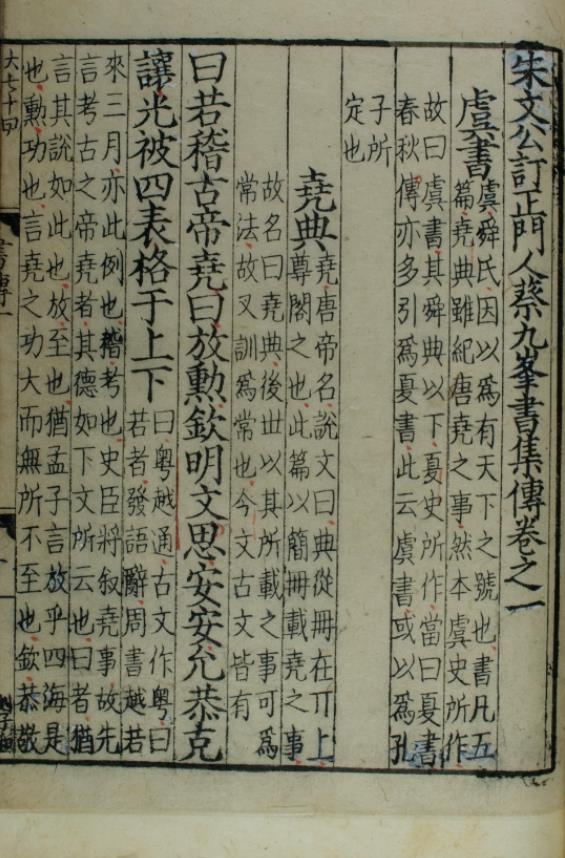 朱文公訂正門人蔡九峯書集傳卷之一
虞書
虞舜氏因以爲有天下之號也書凡五
篇堯典雖紀唐堯之事然本虞史所作
故曰虞書其舜典以下夏史所作當曰夏書
春秋傳亦多引爲夏書此云虞書或以爲孔
子所
定也
堯典
堯唐帝名說文曰典從冊在丌上
尊閣之也此篇以簡冊載堯之事
故名曰堯典後世以其所載之事可爲
常法故又訓爲常也今文古文皆有
曰若稽古帝堯曰放勳欽明文思安安允恭克
讓光被四表格于上下
曰粤越通古文作粤曰
若者發語辭周書越若
來三月亦此例也稽考也史臣將叙堯事故先
言考古之帝堯者其德如下文所云也曰者猶
言其說如此也放至也猶孟子言放乎四海是
也勳功也言堯之功大而無所不至也欽恭敬
書傳一